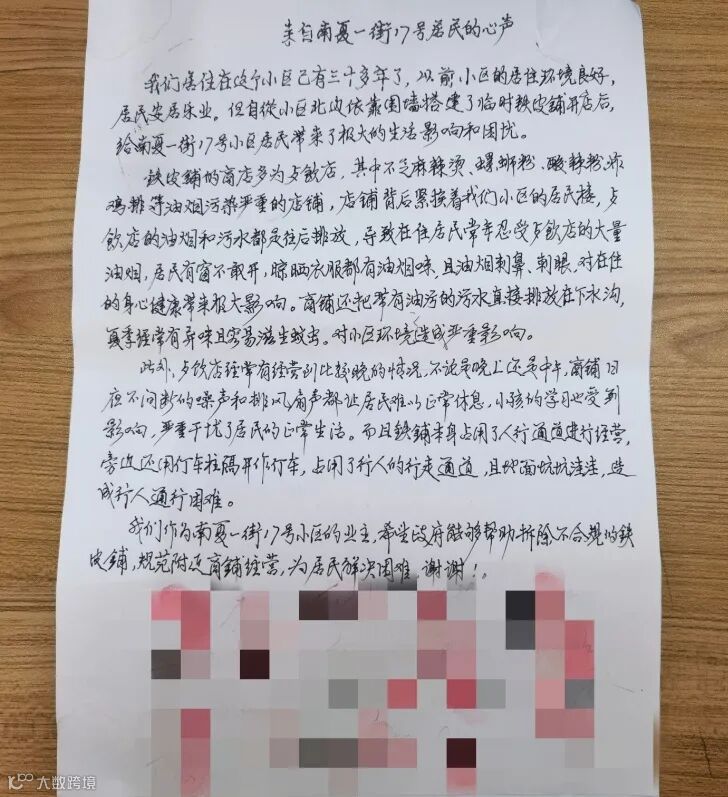 来自南夏一街17号居民的心声
我们居住在这个小区已有三十多年了，以前小区的居住环境良好，
居民安居乐业。但自從小区北边依靠围墙搭建了临时铁皮铺开店后，
给南夏一街17号小区居民带来了极大的生活影响和困扰。
铁皮铺的商店多为歺飲店，其中不乏麻辣烫、螺蛳粉、酸辣粉、炸
鸡排等油烟污染严重的店铺，店铺背后紧挨着我们小区的居民楼，歺
飲店的油烟和污水都是往后排放，导致在住居民常年忍受歺飲店的大量
油烟，居民有窗不敢开，晾晒衣服都有油烟味，且油烟刺鼻、刺眼，对在住
的身心健康带来极大影响。商铺还把带有油污的污水直接排放在下水沟，
夏季经常有异味且容易滋生蚊虫。对小区环境造成严重影响。
此外，歺飲店经常有经营到比较晚的情况，不论是晚上还是中午，商铺日
夜不间断的噪声和排风扇声都让居民难以正常休息，小孩的学习也受到
影响，严重干扰了居民的正常生活。而且铁铺本身占用了人行通道进行经营，
旁边还用停车柱隔开作停车，占用了行人的行走通道，且地面坑坑洼洼，造
成行人通行困难。
我们作为南夏一街17号小区的业主，希望政府能够帮助拆除不合规的鉄
皮铺，规范附近商铺经营，为居民解决困难，谢谢！
大数跨境